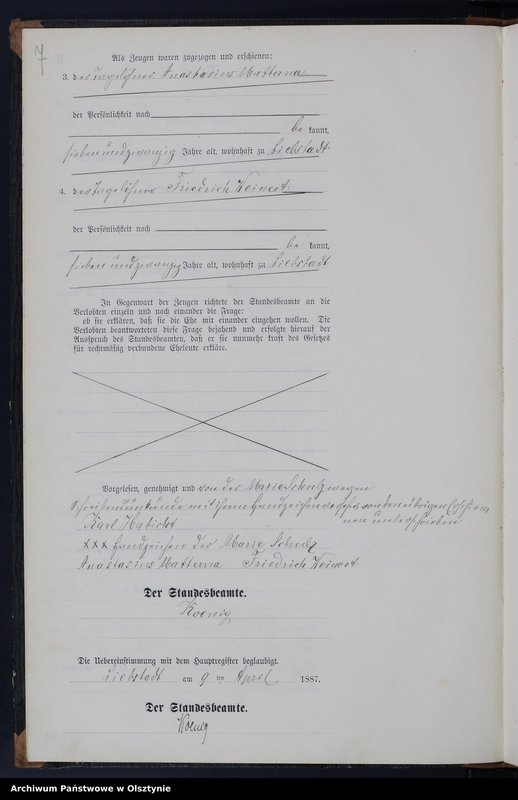 7
Als Zeugen waren zugezogen und erschienen:
3. der Tagelöhner Anastasius Matterna
der Persönlichkeit nach
be kannt,
siebenundzwanzig Jahre alt, wohnhaft zu Liebstadt
4. der Tagelöhner Friedrich Keinert
der Persönlichkeit nach
be kannt,
siebenundzwanzig Jahre alt, wohnhaft zu Liebstadt
In Gegenwart der Zeugen richtete der Standesbeamte an die
Verlobten einzeln und nach einander die Frage:
ob sie erklären, daß sie die Ehe mit einander eingehen wollen. Die
Verlobten beantworteten diese Frage bejahend und erfolgte hierauf der
Ausspruch des Standesbeamten, daß er sie nunmehr kraft des Gesetzes
für rechtmäßig verbundene Eheleute erkläre.
Vorgelesen, genehmigt und von der Marie Schulz wegen
Schreibensunkunde mit ihrem Handzeichen versehen, von den übrigen Erschiene
nen unterschrieben
Karl Habicht
XXX Handzeichen der Marie Schulz
Anastasius Matterna Friedrich Keinert
Der Standesbeamte.
Koenig
Die Uebereinstimmung mit dem Hauptregister beglaubigt.
Liebstadt am 9 ten April 1887.
Der Standesbeamte.
Koenig
Archiwum Państwowe w Olsztynie